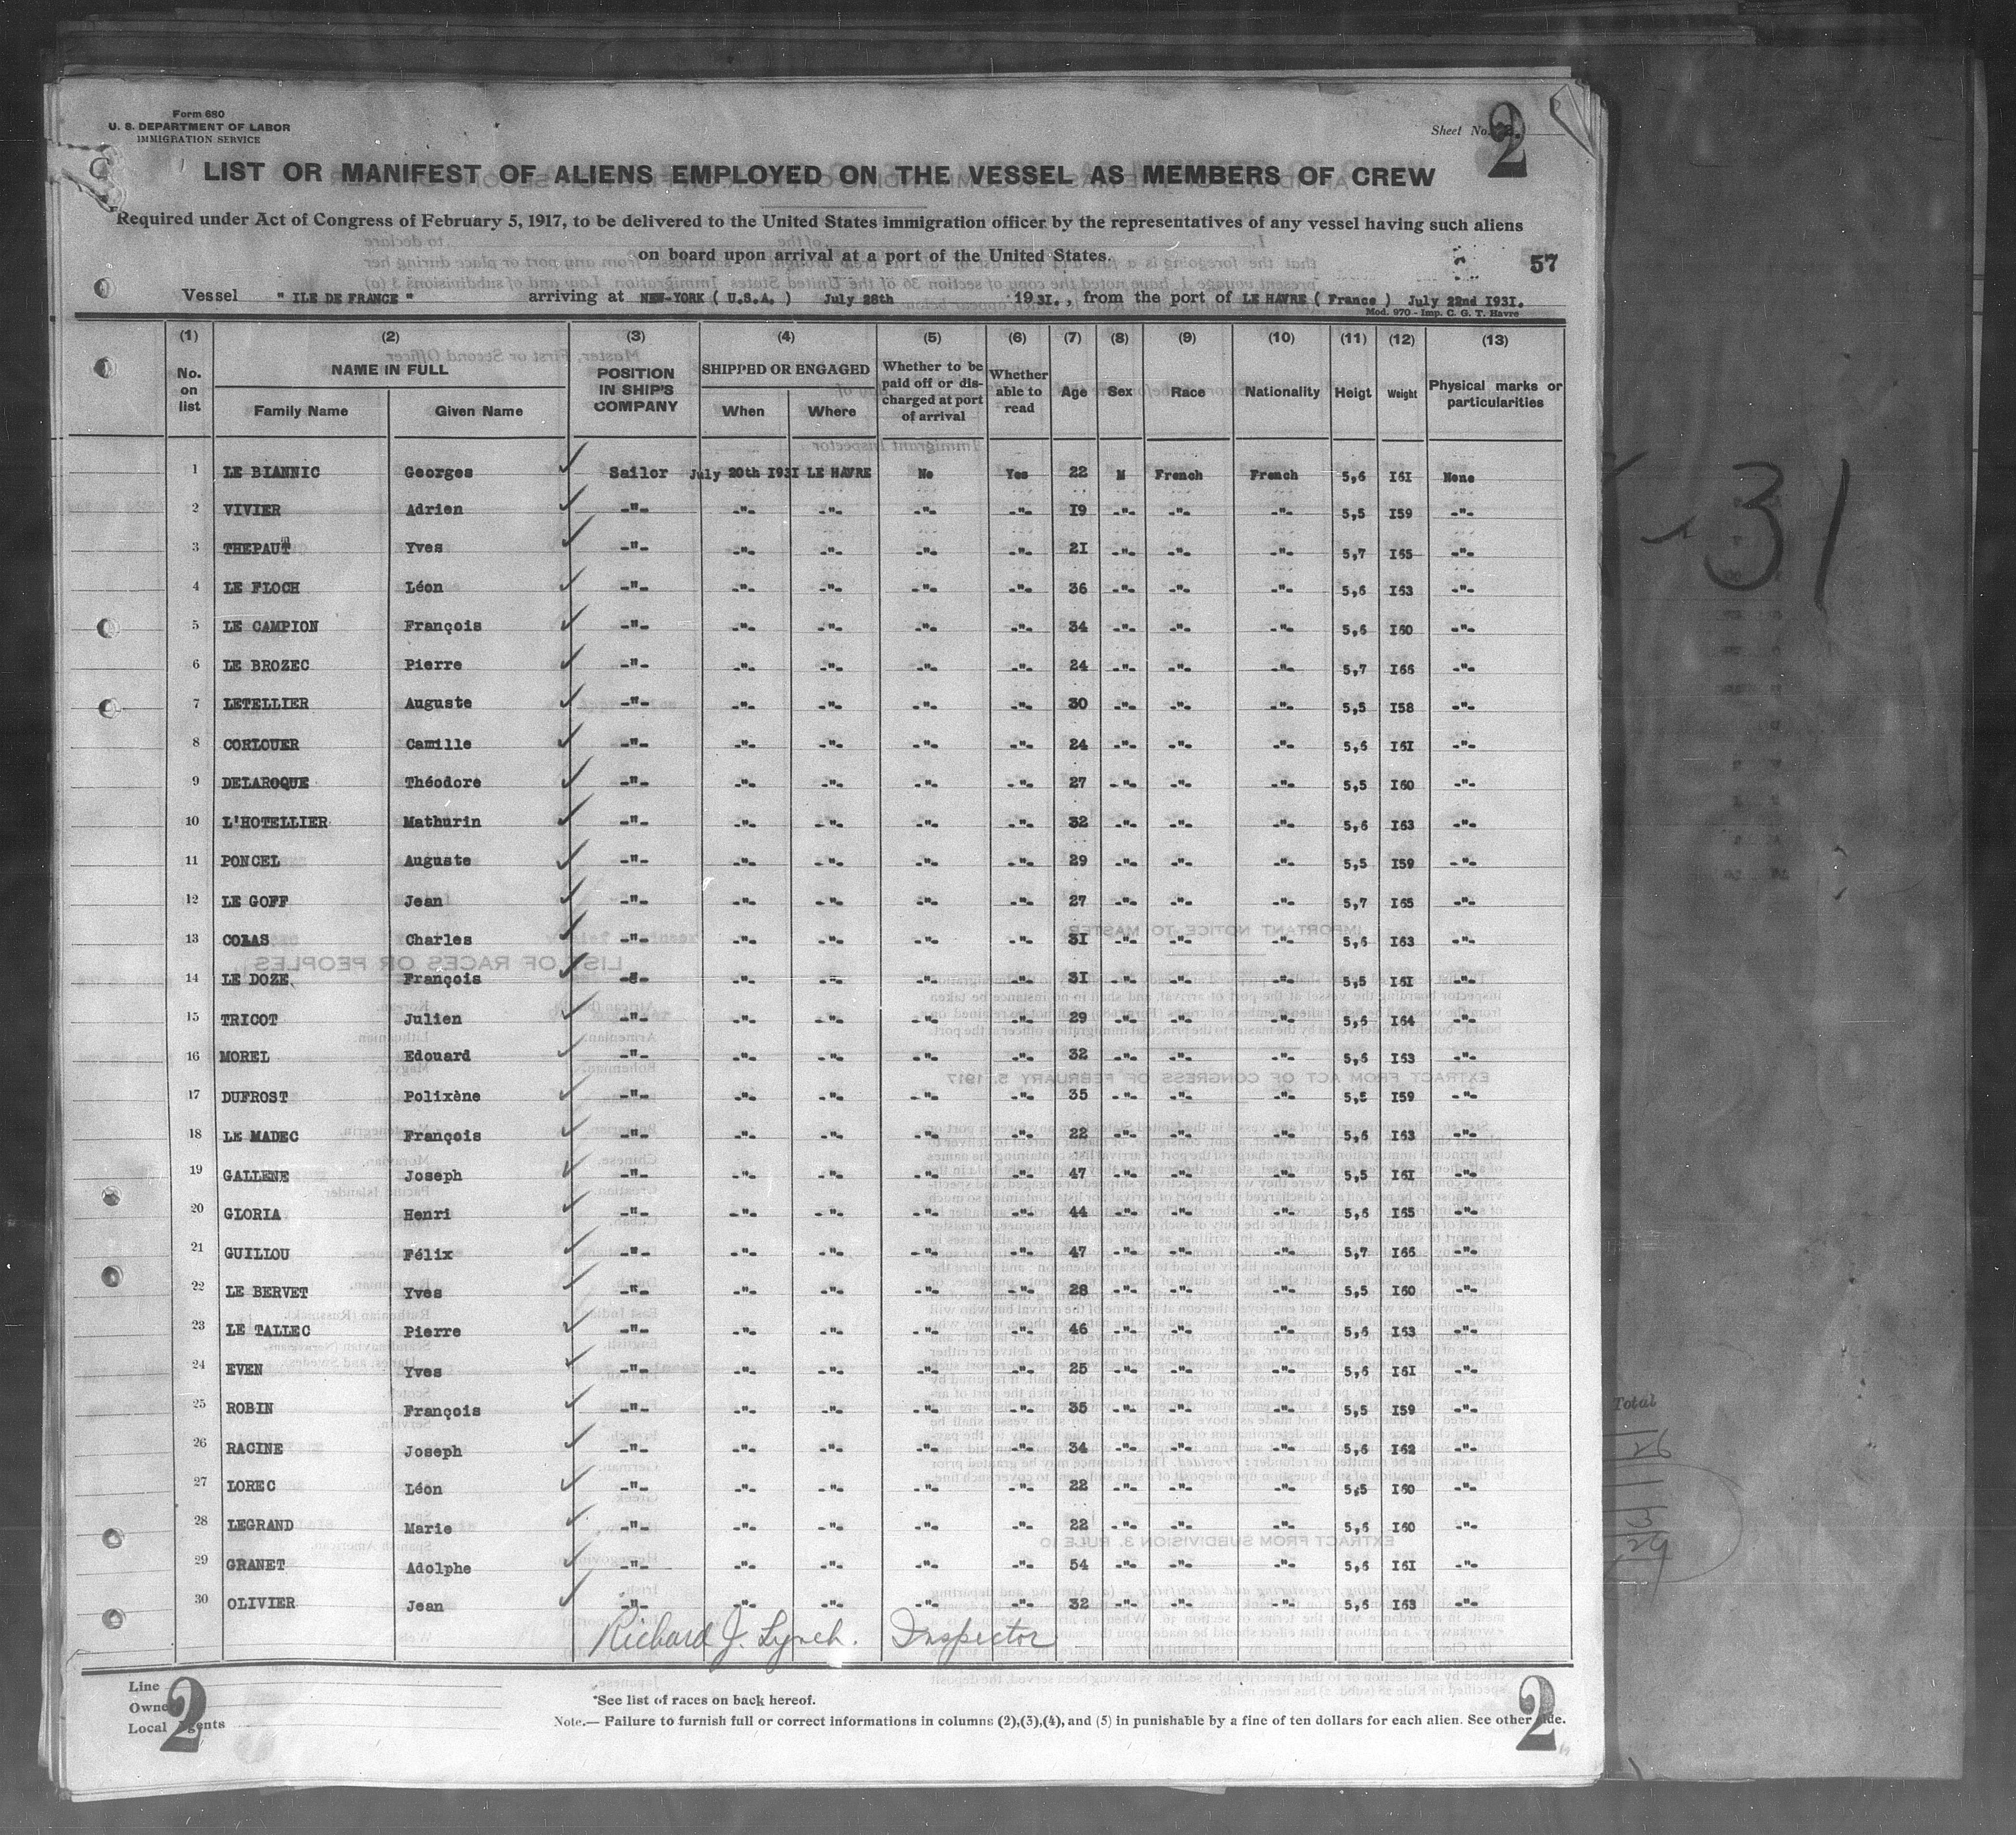 Form 680
U. S. DEPARTMENT OF LABOR
IMMIGRATION SERVICE
Sheet No. 2
LIST OR MANIFEST OF ALIENS EMPLOYED ON THE VESSEL AS MEMBERS OF CREW
Required under Act of Congress of February 5, 1917, to be delivered to the United States immigration officer by the representatives of any vessel having such aliens
on board upon arrival at a port of the United States.
57
Vessel " ILE DE FRANCE " arriving at NEW-YORK ( U.S.A. ) July 28th 1931., from the port of LE HAVRE ( France ) July 22nd 1931.
Mod. 970 - Imp. C. G. T. Havre
(1) (2) (3) (4) (5) (6) (7) (8) (9) (10) (11) (12) (13)
No. on list NAME IN FULL Family Name Given Name POSITION IN SHIP'S COMPANY SHIPPED OR ENGAGED When Where Whether to be paid off or discharged at port of arrival Whether able to read Age Sex Race Nationality Heigt Weight Physical marks or particularities
1 LE BIANNIC Georges Sailor July 20th 1931 LE HAVRE No Yes 22 M French French 5,6 161 None
2 VIVIER Adrien -"- -"- -"- -"- -"- 19 -"- -"- -"- 5,5 159 -"-
3 THEPAUT Yves -"- -"- -"- -"- -"- 21 -"- -"- -"- 5,7 165 -"-
4 LE FLOCH Léon -"- -"- -"- -"- -"- 36 -"- -"- -"- 5,6 163 -"-
5 LE CAMPION François -"- -"- -"- -"- -"- 34 -"- -"- -"- 5,6 160 -"-
6 LE BROZEC Pierre -"- -"- -"- -"- -"- 24 -"- -"- -"- 5,7 166 -"-
7 LETELLIER Auguste -"- -"- -"- -"- -"- 30 -"- -"- -"- 5,5 158 -"-
8 CORLOUER Camille -"- -"- -"- -"- -"- 24 -"- -"- -"- 5,6 161 -"-
9 DELAROQUE Théodore -"- -"- -"- -"- -"- 27 -"- -"- -"- 5,5 160 -"-
10 L'HOTELLIER Mathurin -"- -"- -"- -"- -"- 32 -"- -"- -"- 5,6 163 -"-
11 PONCEL Auguste -"- -"- -"- -"- -"- 29 -"- -"- -"- 5,5 159 -"-
12 LE GOFF Jean -"- -"- -"- -"- -"- 27 -"- -"- -"- 5,7 165 -"-
13 COLAS Charles -"- -"- -"- -"- -"- 31 -"- -"- -"- 5,6 163 -"-
14 LE DOZE François -"- -"- -"- -"- -"- 31 -"- -"- -"- 5,5 161 -"-
15 TRICOT Julien -"- -"- -"- -"- -"- 29 -"- -"- -"- 5,6 164 -"-
16 MOREL Edouard -"- -"- -"- -"- -"- 32 -"- -"- -"- 5,6 163 -"-
17 DUFROST Polixène -"- -"- -"- -"- -"- 35 -"- -"- -"- 5,5 159 -"-
18 LE MADEC François -"- -"- -"- -"- -"- 22 -"- -"- -"- 5,6 163 -"-
19 GALLENE Joseph -"- -"- -"- -"- -"- 47 -"- -"- -"- 5,5 161 -"-
20 GLORIA Henri -"- -"- -"- -"- -"- 44 -"- -"- -"- 5,6 165 -"-
21 GUILLOU Félix -"- -"- -"- -"- -"- 47 -"- -"- -"- 5,7 166 -"-
22 LE BERVET Yves -"- -"- -"- -"- -"- 28 -"- -"- -"- 5,5 160 -"-
23 LE TALLEC Pierre -"- -"- -"- -"- -"- 46 -"- -"- -"- 5,6 163 -"-
24 EVEN Yves -"- -"- -"- -"- -"- 25 -"- -"- -"- 5,6 161 -"-
25 ROBIN François -"- -"- -"- -"- -"- 35 -"- -"- -"- 5,5 159 -"-
26 RACINE Joseph -"- -"- -"- -"- -"- 34 -"- -"- -"- 5,6 162 -"-
27 LOREC Léon -"- -"- -"- -"- -"- 22 -"- -"- -"- 5,5 160 -"-
28 LEGRAND Marie -"- -"- -"- -"- -"- 22 -"- -"- -"- 5,6 160 -"-
29 GRANET Adolphe -"- -"- -"- -"- -"- 54 -"- -"- -"- 5,6 161 -"-
30 OLIVIER Jean -"- -"- -"- -"- -"- 32 -"- -"- -"- 5,6 163 -"-
Richard J. Lynch. Inspector
Line
Owner
Local Agents
2
*See list of races on back hereof.
Note.— Failure to furnish full or correct informations in columns (2),(3),(4), and (5) in punishable by a fine of ten dollars for each alien. See other side.
2
31
Total